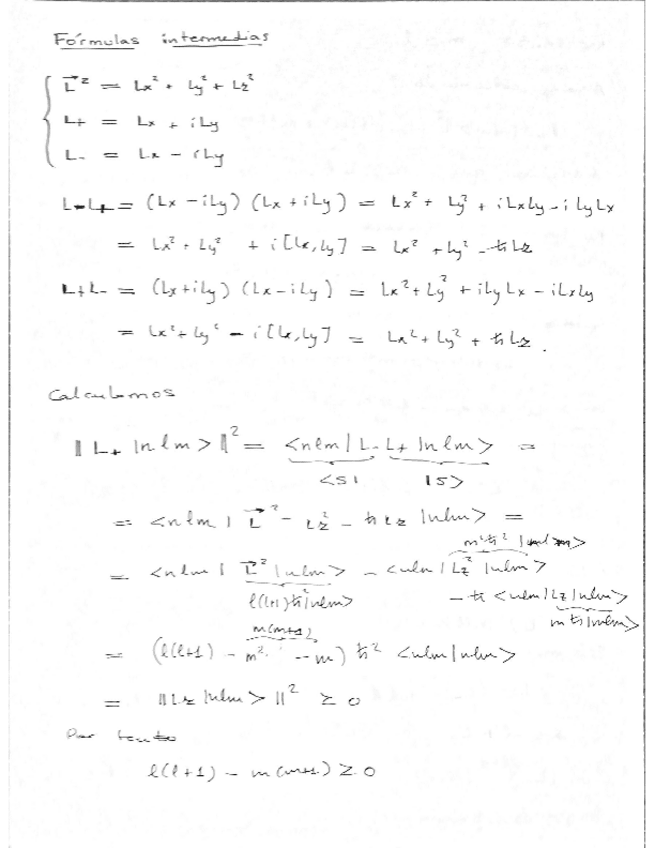 Fórmulas intermedias
L⃗² = Lx² + Ly² + Lz²
L+ = Lx + iLy
L- = Lx - iLy
L-L+ = (Lx - iLy) (Lx + iLy) = Lx² + Ly² + iLxLy - iLyLx
= Lx² + Ly² + i[Lx,Ly] = Lx² + Ly² - ℏLz
L+L- = (Lx+iLy) (Lx-iLy) = Lx² + Ly² + iLyLx - iLxLy
= Lx² + Ly² - i[Lx,Ly] = Lx² + Ly² + ℏLz.
Calculamos
‖L+ |nlm>‖² = <nlm| L- L+ |nlm> =
<S| |S>
= <nlm| L⃗² - Lz² - ℏLz |nlm> =
m²ℏ² |nlm>
= <nlm| L⃗² |nlm> - <nlm| Lz² |nlm>
l(l+1)ℏ²|nlm> - ℏ <nlm|Lz|nlm>
m(m+1) mℏ|nlm>
= (l(l+1) - m² - m) ℏ² <nlm|nlm>
= ‖L± |nlm>‖² ≥ 0
Por tanto
l(l+1) - m(m+1) ≥ 0